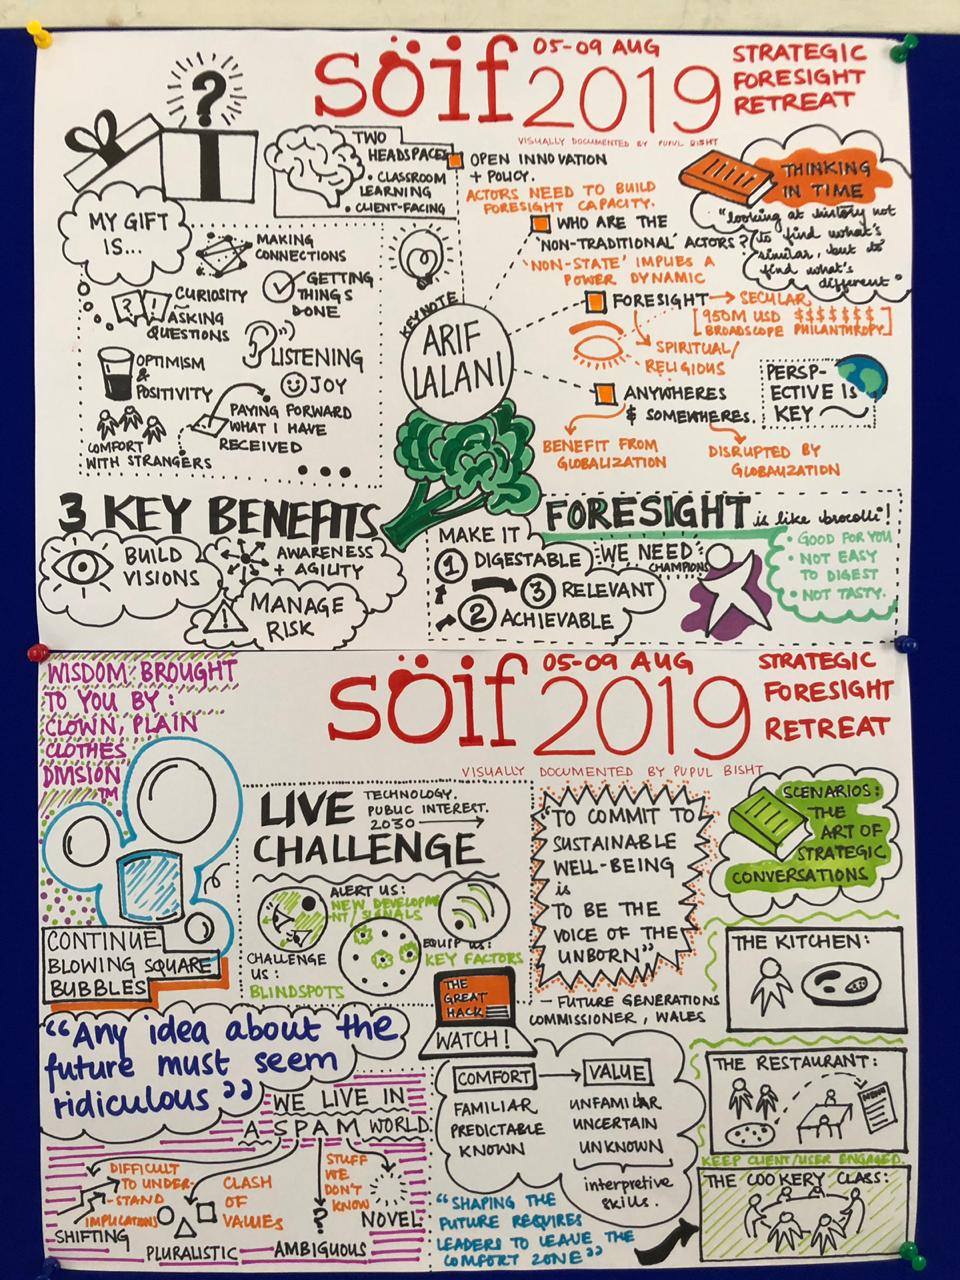 söif
05-09 AUG
2019
STRATEGIC
FORESIGHT
RETREAT
VISUALLY DOCUMENTED BY PUPUL BISHT
?
MY GIFT
IS...
MAKING
CONNECTIONS
CURIOSITY
? !
ASKING
QUESTIONS
GETTING
THINGS
DONE
OPTIMISM
&
POSITIVITY
LISTENING
JOY
COMFORT
WITH STRANGERS
PAYING FORWARD
WHAT I HAVE
RECEIVED
TWO
HEADSPACES
• CLASSROOM
LEARNING
• CLIENT-FACING
KEYNOTE
ARIF
LALANI
OPEN INNOVATION
+ POLICY.
ACTORS NEED TO BUILD
FORESIGHT CAPACITY.
WHO ARE THE
'NON-TRADITIONAL' ACTORS?
'NON-STATE' IMPLIES A
POWER DYNAMIC
FORESIGHT → SECULAR
[950M USD $$$$$$$
BROADSCOPE PHILANTHROPY]
SPIRITUAL/
RELIGIOUS
ANYWHERES
& SOMEWHERES.
BENEFIT FROM
GLOBALIZATION
DISRUPTED BY
GLOBALIZATION
THINKING
IN TIME
"looking at history not
to find what's
similar, but to
find what's
different"
PERSP-
ECTIVE IS
KEY
3 KEY BENEFITS
BUILD
VISIONS
AWARENESS
+ AGILITY
MANAGE
RISK
FORESIGHT is like brocolli!
MAKE IT
1 DIGESTABLE
2 ACHIEVABLE
3 RELEVANT
WE NEED
CHAMPIONS
• GOOD FOR YOU
• NOT EASY
TO DIGEST
• NOT TASTY.
söif
05-09 AUG
2019
STRATEGIC
FORESIGHT
RETREAT
VISUALLY DOCUMENTED BY PUPUL BISHT
WISDOM BROUGHT
TO YOU BY:
CLOWN, PLAIN
CLOTHES
DIVISION
TM
CONTINUE
BLOWING SQUARE
BUBBLES
LIVE
CHALLENGE
TECHNOLOGY.
PUBLIC INTEREST.
2030
ALERT US:
NEW DEVELOPME
NT/SIGNALS
CHALLENGE
US:
BLINDSPOTS
EQUIP US:
KEY FACTORS
THE
GREAT
HACK
WATCH!
"TO COMMIT TO
SUSTAINABLE
WELL-BEING
is
TO BE THE
VOICE OF THE
UNBORN"
— FUTURE GENERATIONS
COMMISSIONER, WALES
SCENARIOS:
THE
ART OF
STRATEGIC
CONVERSATIONS
THE KITCHEN:
THE RESTAURANT:
MENU
KEEP CLIENT/USER ENGAGED.
THE COOKERY CLASS:
"Any idea about the
future must seem
ridiculous"
WE LIVE IN
A SPAM WORLD.
DIFFICULT
TO UNDER-
STAND
IMPLICATIONS
SHIFTING
CLASH
OF
VALUES
PLURALISTIC
STUFF
WE
DON'T
KNOW
?
AMBIGUOUS
NOVEL
COMFORT → VALUE
FAMILIAR
PREDICTABLE
KNOWN
UNFAMILIAR
UNCERTAIN
UNKNOWN
interpretive
skills.
"SHAPING THE
FUTURE REQUIRES
LEADERS TO LEAVE THE
COMFORT ZONE"